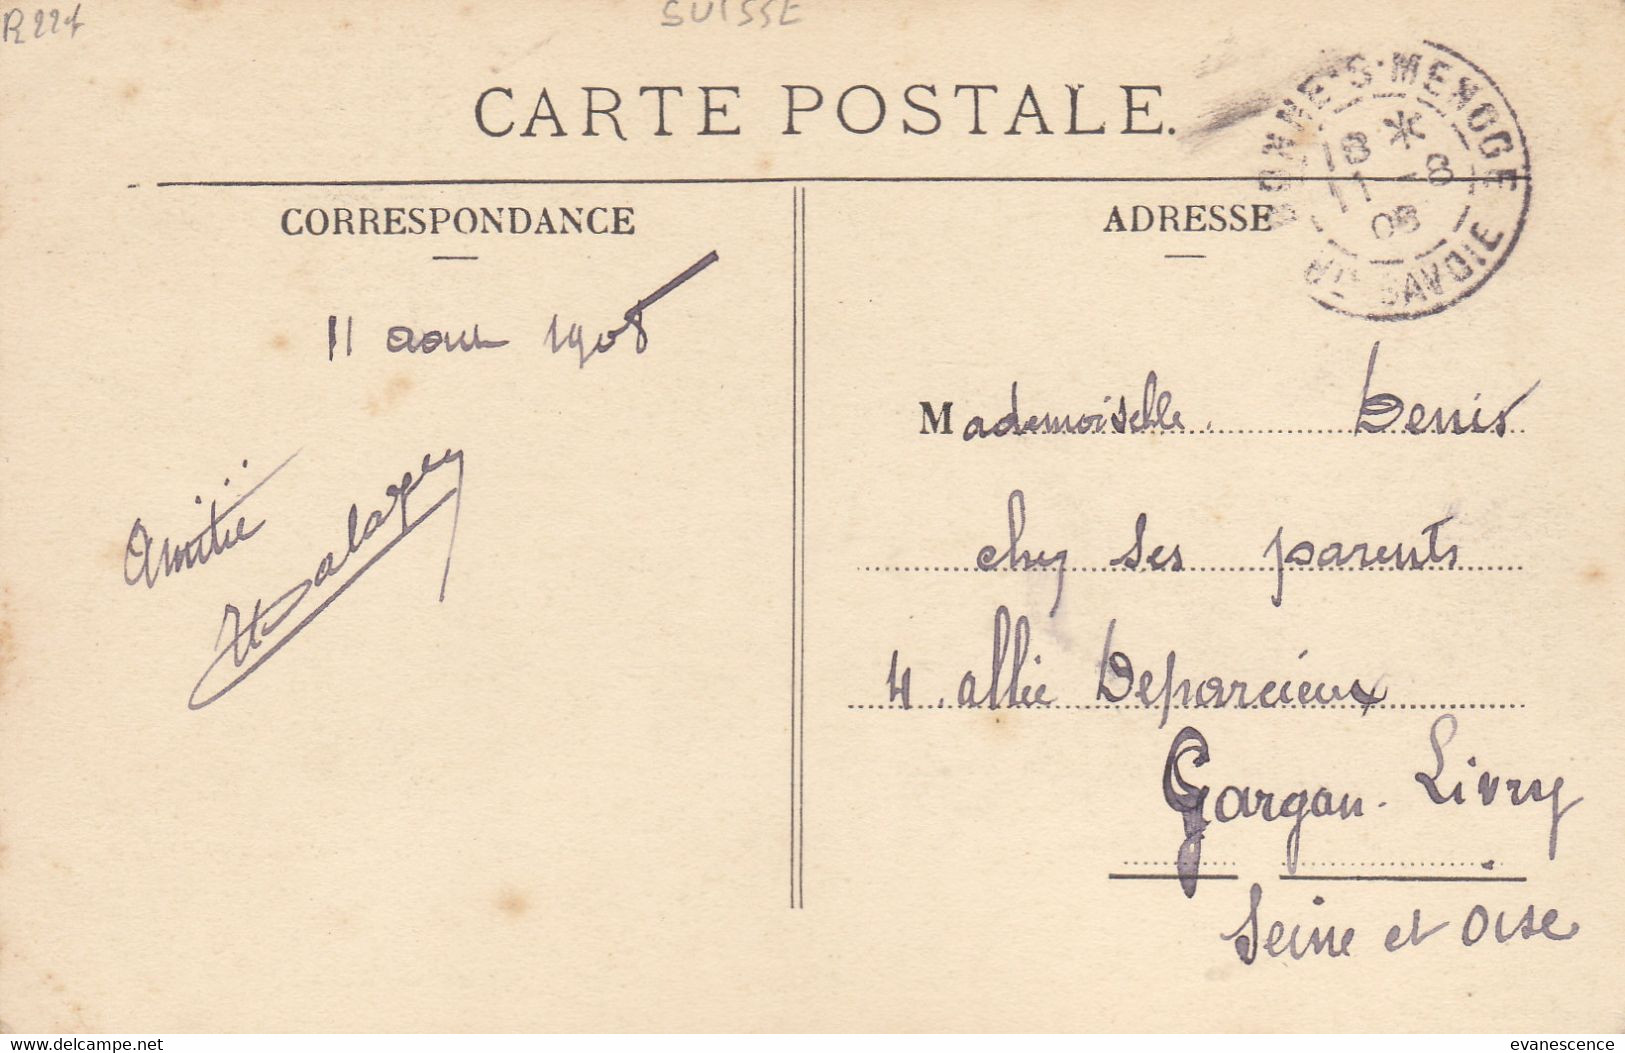 SUISSE
CARTE POSTALE.
BONNE-S-MENOGE
18 *
11 -8
08
HTE SAVOIE
CORRESPONDANCE
ADRESSE
11 aout 1908
Mademoiselle. Denis
Amitié
chez ses parents
4. allée Deparcieux
Gargan. Livry
Seine et Oise
www.delcampe.net
evanescence